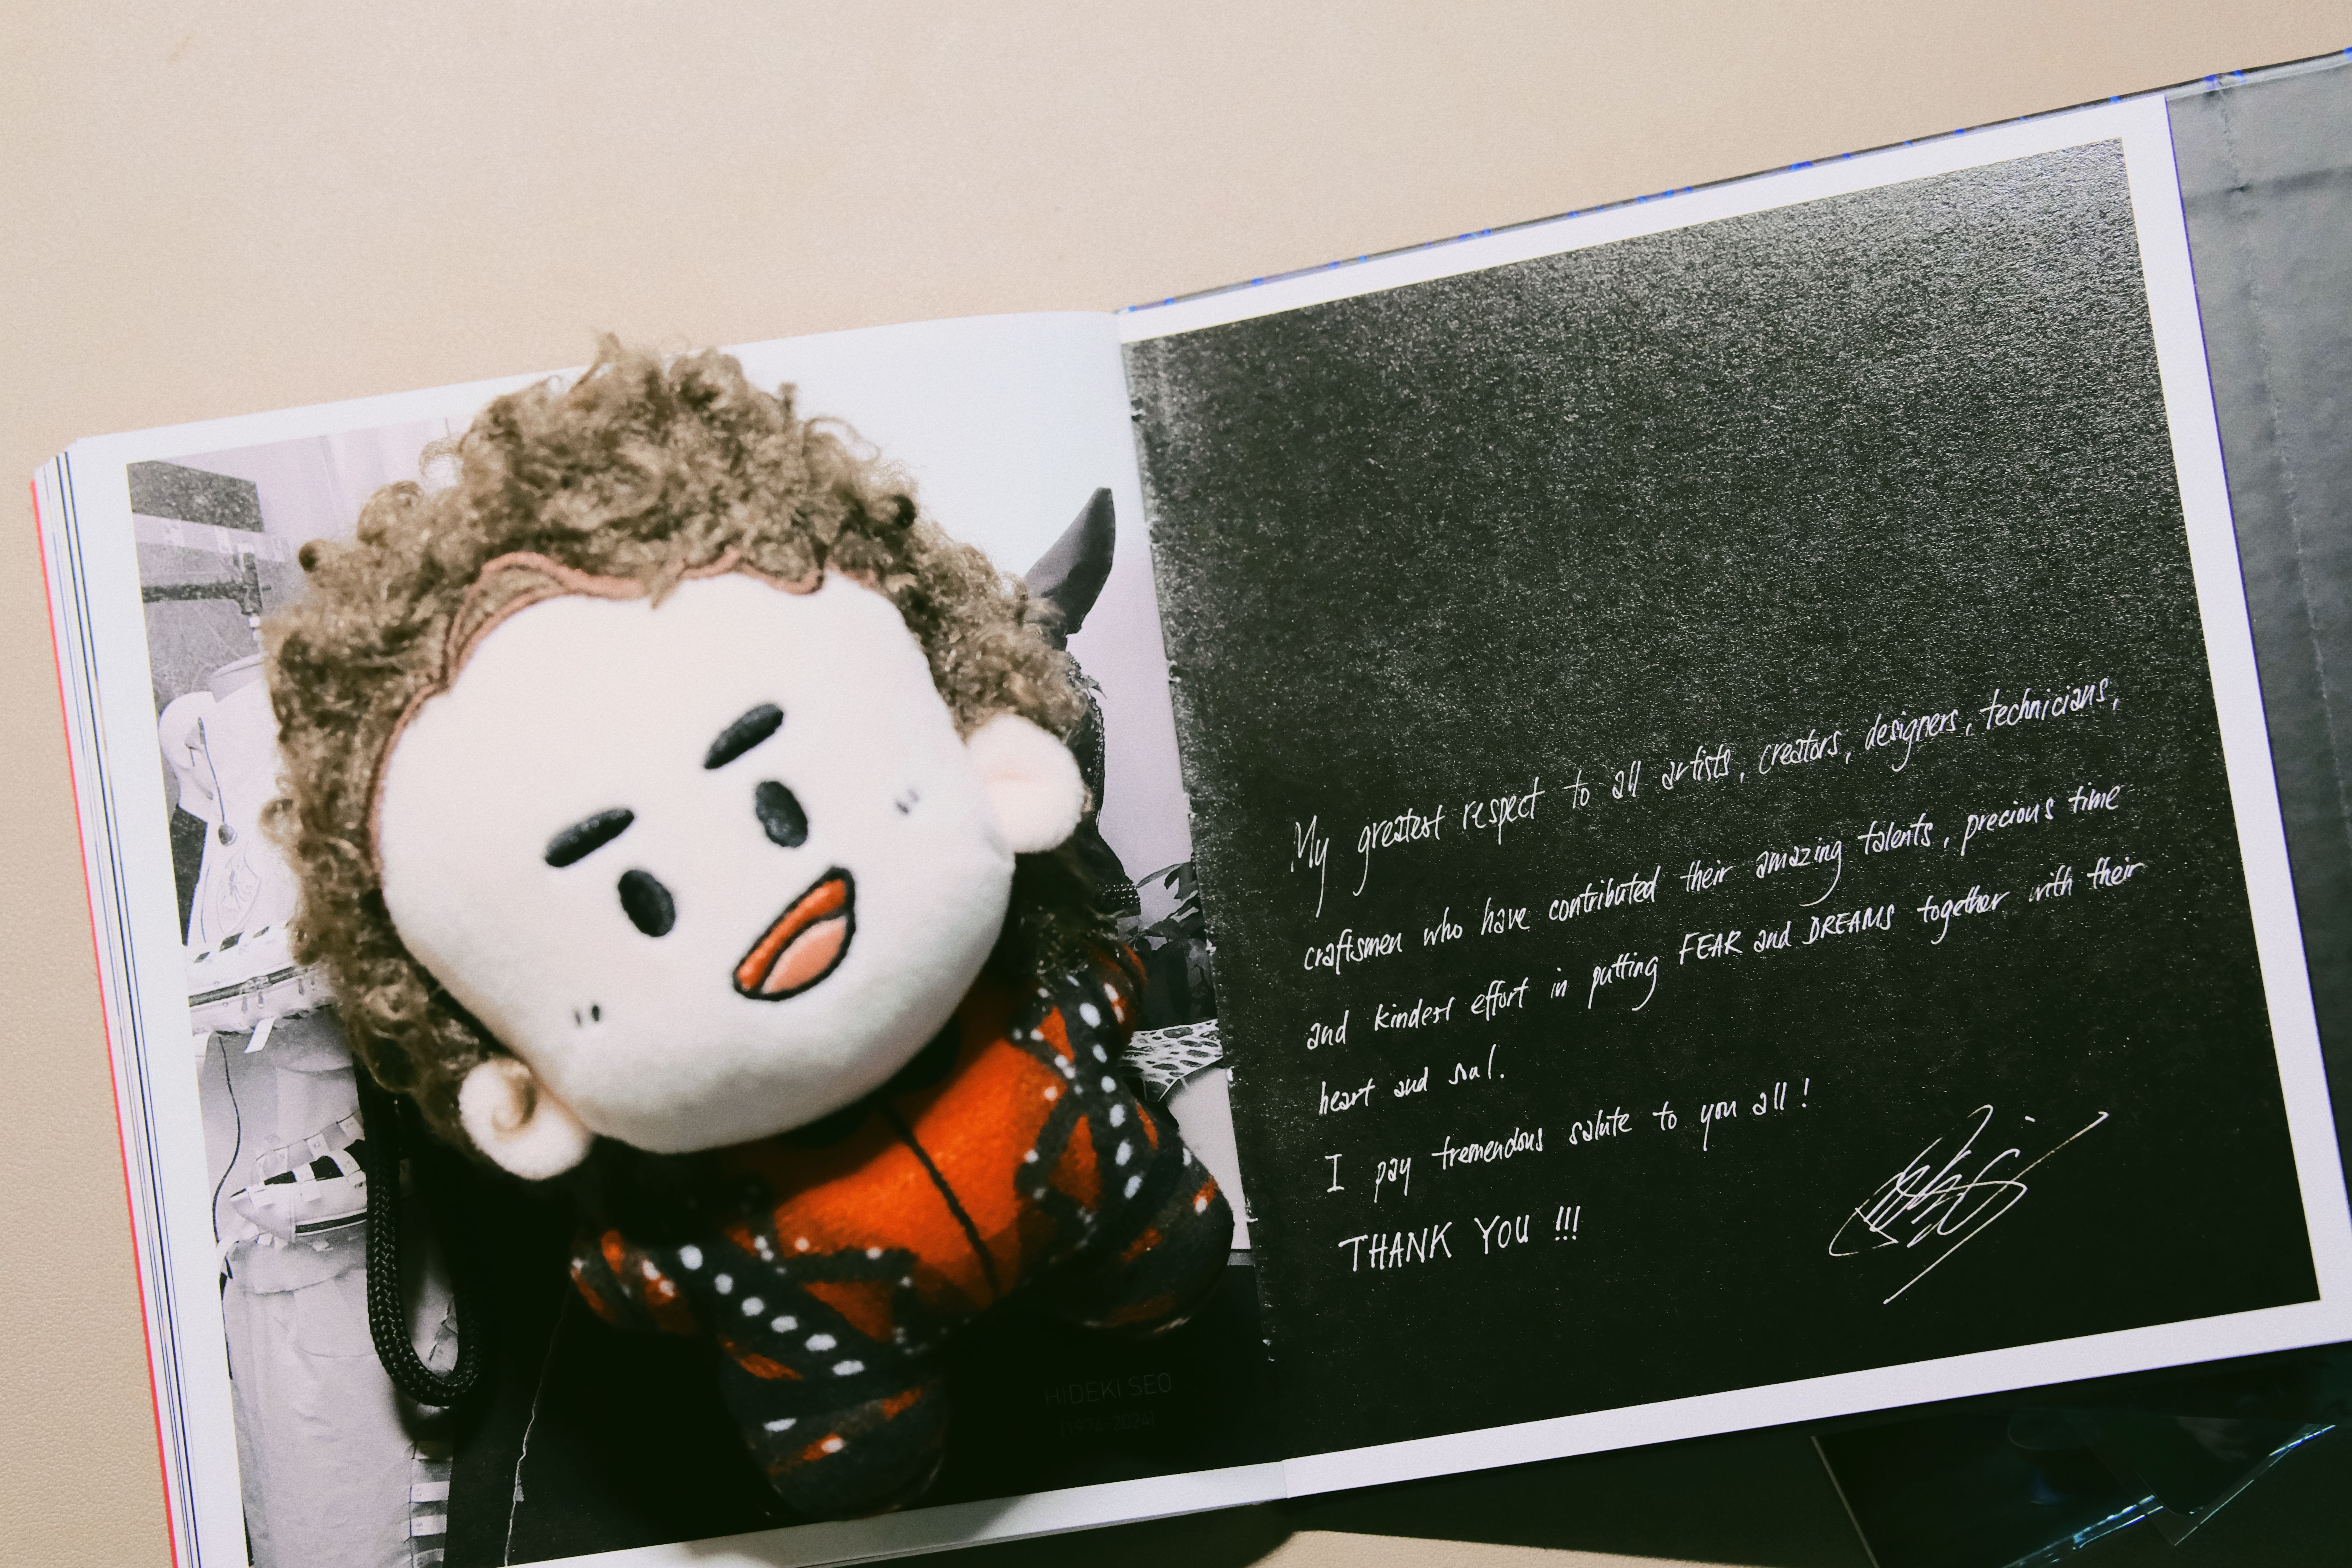 HIDEKI SEO
(1974-2024)
My greatest respect to all artists, creators, designers, technicians,
craftsmen who have contributed their amazing talents, precious time
and kindest effort in putting FEAR and DREAMS together with their
heart and soul.
I pay tremendous salute to you all !
THANK YOU !!!